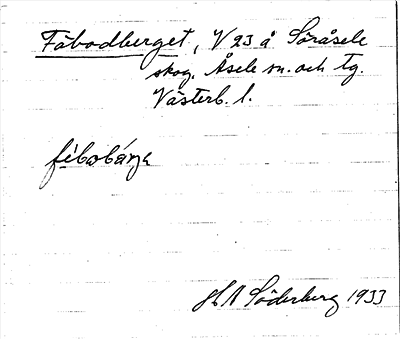 Fäbodberget, V 23 å Söråsele
skog, Åsele sn. och tg.
Västerb. l.
fèbobárja
H A Söderberg 1933